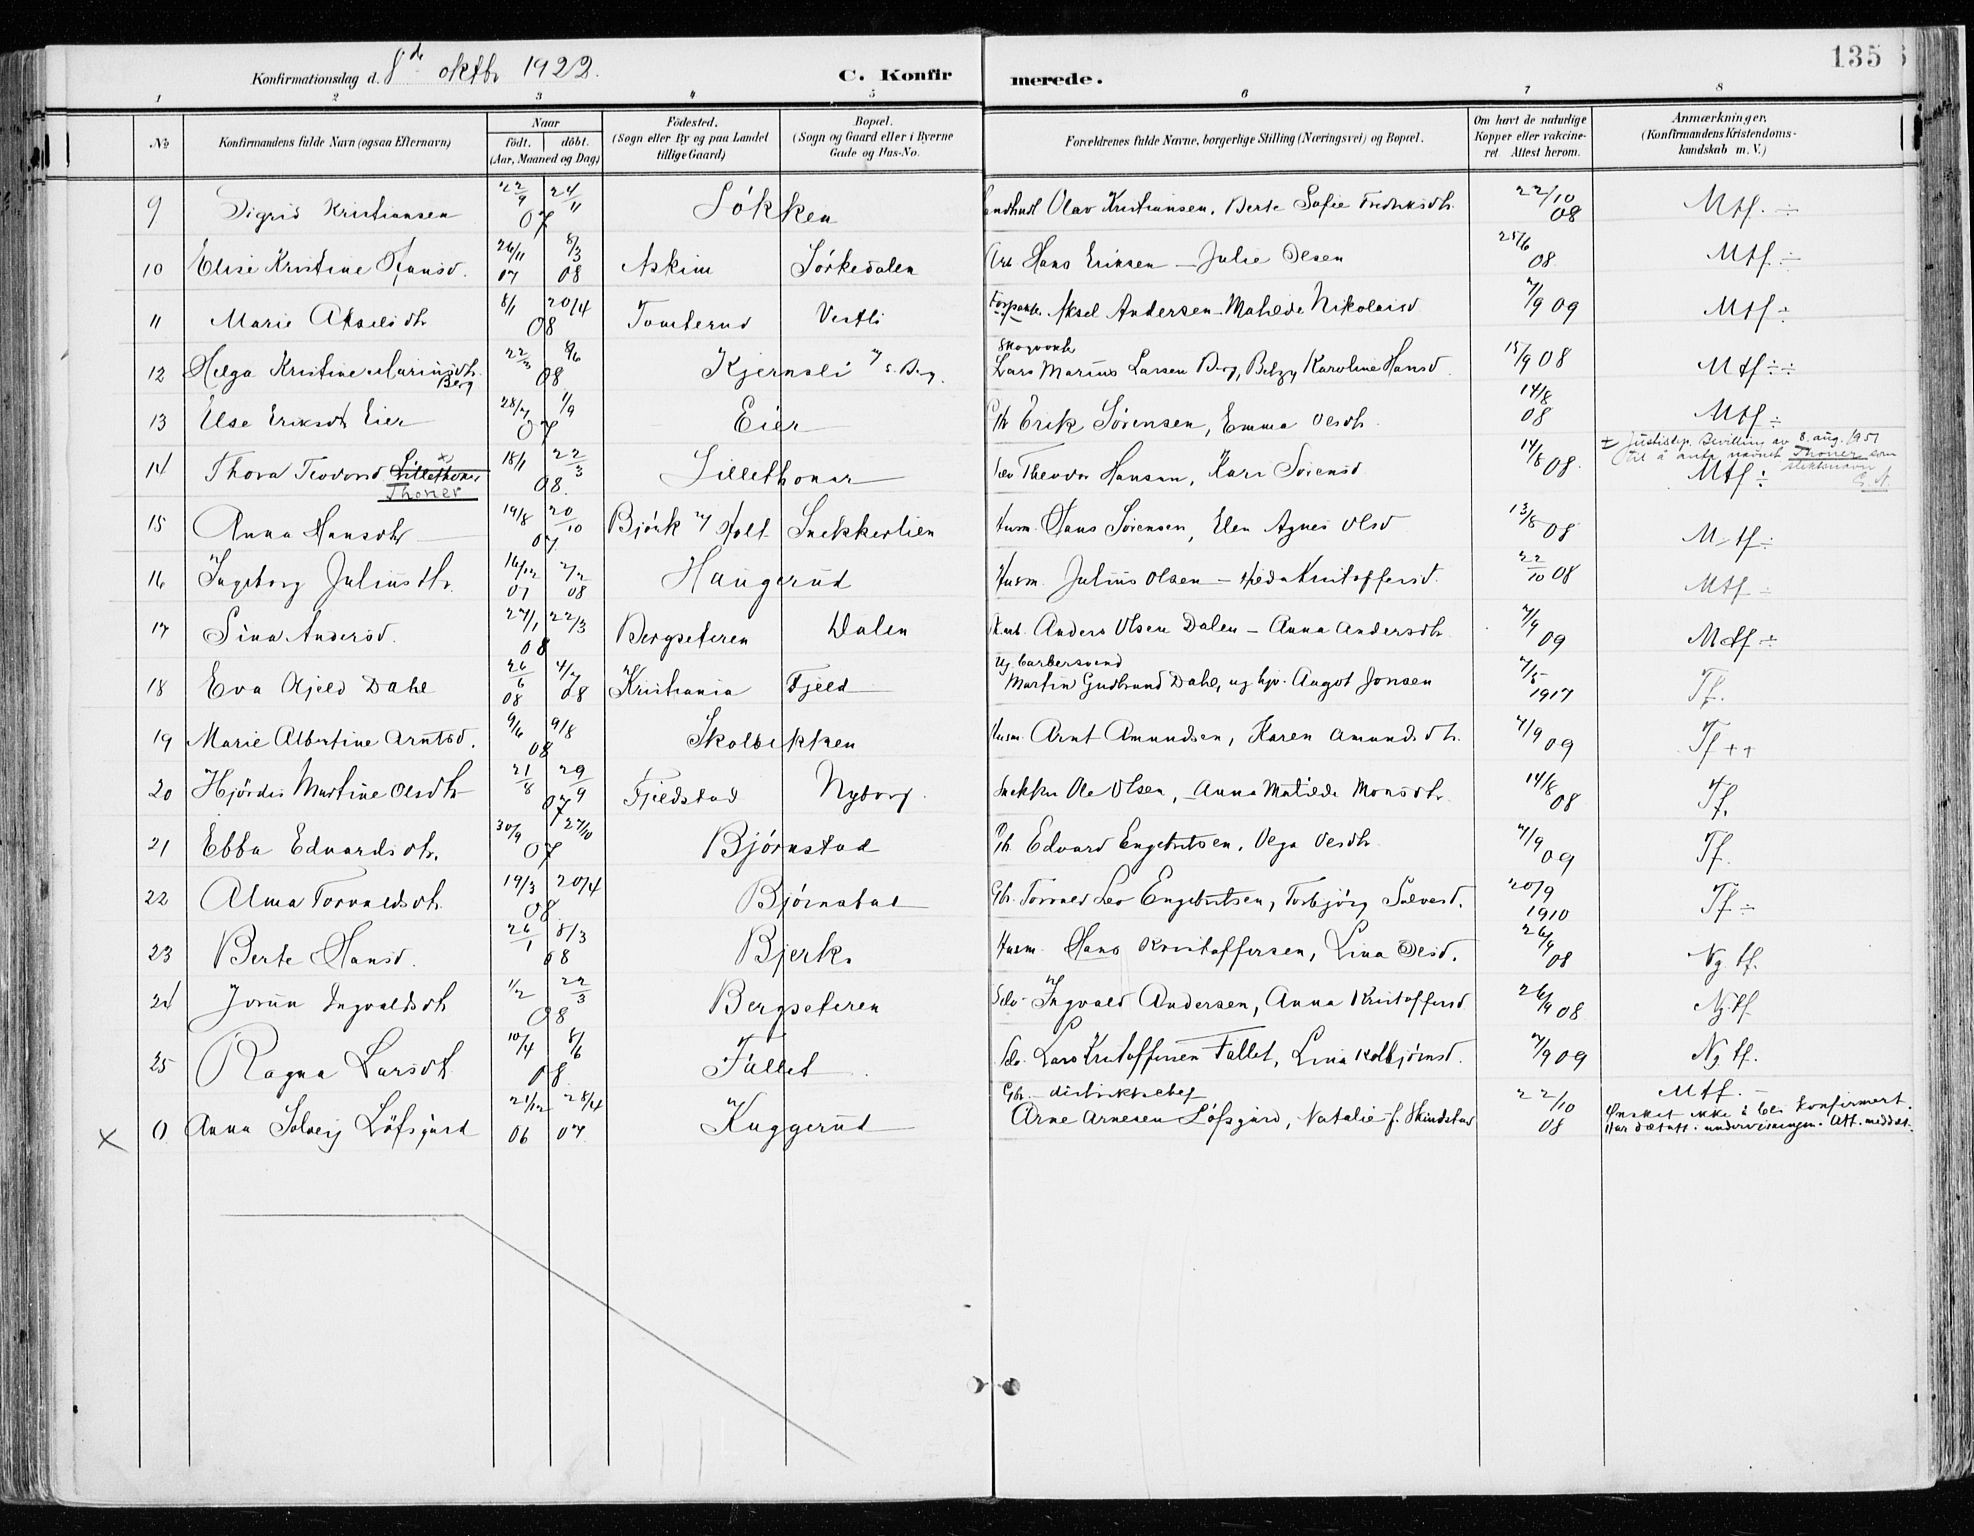 135
Konfirmationsdag d. 8de oktbr 1922.
C. Konfirmerede.
1 2 3 4 5 6 7 8
No
Konfirmandens fulde Navn (ogsaa Efternavn)
Naar
født. døbt.
(Aar, Maaned og Dag)
Fødested.
(Sogn eller By og paa Landet
tillige Gaard)
Bopæl.
(Sogn og Gaard eller i Byerne
Gade og Hus-No.
Forældrenes fulde Navne, borgerlige Stilling (Næringsvei) og Bopæl.
Om havt de naturlige
Kopper eller vakcine-
ret Attest herom.
Anmærkninger.
(Konfirmandens Kristendoms-
kundskab m. V.)
9 Sigrid Kristiansen 22/9 24/11 07 Løkken Olav Kristiansen, Berte Sofie Fredriksdtr. 22/10 08 Mtf. ÷
10 Elise Kristine Hansd. 26/11 07 8/3 08 Askim Sørkedalen Arb. Hans Eriksen – Julie Olsen 25/6 08 Mtf ÷
11 Marie Akselsdtr 8/1 20/4 08 Tomterud Vestli Aksel Andersen – Matilde Nikolaisd 7/9 09 Mtf ÷
12 Helga Kristine Mariusdtr. Berg 08 Kjernsli Skogvokt. Lars Marius Larsen Berg, Betzy Karoline Hansd. 15/9 08 Mtf ÷÷
13 Else Eriksdtr Eier 07 Eier Erik Sørensen, Emma Olsdtr. 14/8 08 Mtf ÷
14 Thora Teodorsd Lillethoner Thoner 18/1 22/3 08. Lillethoner Theodor Hansen, Kari Sørensd. 14/8 08. Mtf ÷
Justisdep. Bevilling av 8. aug. 1951
til å anta navnet Thoner som
slektsnavn
15 Anna Hansdtr 19/8 20/10 07 Bjørk Holt Snekkerlien Husm. Hans Sørensen, Elen Agnes Olsd 13/8 08 Mtf ÷
16 Ingeborg Juliusdtr. 16/12 07 2/2 08 Haugerud Husm. Julius Olsen – Kristoffersd. 22/10 08 Mtf ÷
17 Sina Andersd. 27/1 22/3 08 Bergseteren Dalen Anders Olsen Dalen – Anna Andersdtr. 7/9 09 Mtf ÷
18 Eva Fjeld Dahl 26/6 08 4/7 08 Kristiania Fjeld Ug. barbersvend Martin Gudbrand Dahl, ug. kv. Aagot Jonsen 7/5 1917 Tf.
19 Marie Albertine Arntsd. 9/6 9/8 08 Skolbekken Husm. Arnt Amundsen, Karen Amundsdtr. 7/9 09 Tf ++
20 Hjørdis Martine Olsdtr 21/8 29/9 07 Fjeldstad Nyborg. Snekker Ole Olsen, – Anna Matilde Monsdtr. 14/8 08 Tf.
21 Ebba Edvardsdtr. 30/9 27/10 07 Bjørnstad Edvard Engebretsen, Olga Olsdtr. 7/9 09 Tf.
22 Alma Torvaldsdtr. 19/3 20/4 08 Bjørnstad Gbr. Torvald Leo Engebretsen, Torbjørg 20/9 1910 Tf ÷
23 Berte Hansd. 26/1 8/3 08 Bjerke Husm. Hans Kristoffersen, Lina Olsd. 26/9 08 Ng. tf.
24 Jorun Ingvaldsdtr 1/2 22/3 08 Bergseteren Selv. Ingvald Andersen, Anna Kristoffersd 26/9 08 Ng tf
25 Ragna Larsdtr. 10/4 8/6 08 Fallet Selv. Lars Kristoffersen Fallet, Lina Kolbjørnsd. 7/9 09 Ng. tf.
× 0 Anna Solveig Løfsgård 21/12 06 28/4 07 Kuggerud Gbr. – distriktschef Arne Arnesen Løfsgård, Natalie f. Skindstad 22/10 08 Mtf. –
Ønsket ikke å bli konfirmert.
Har deltatt i undervisningen. Att. meddelt.